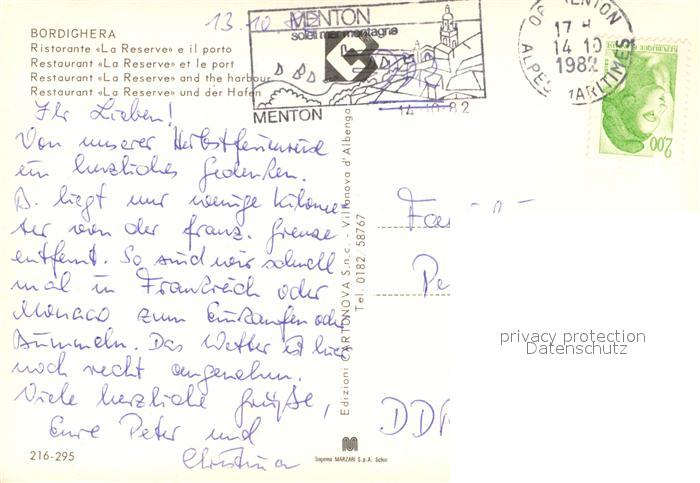 13.10.82
BORDIGHERA
Ristorante «La Reserve» e il porto
Restaurant «La Reserve» et le port
Restaurant «La Reserve» and the harbour
Restaurant «La Reserve» und der Hafen
MENTON
soleil mer montagne
MENTON
14-10-82
MENTON
17 H
14 10
1982
ALPES MARITIMES
2,00
Ihr Lieben!
Von unserer Herbstferienreise
ein herzliches Gedenken.
B. liegt nur wenige Kilome-
ter von der franz. Grenze
entfernt. So sind wir schnell
mal in Frankreich oder
Monaco zum Einkaufen oder
Bummeln. Das Wetter ist hier
noch recht angenehm.
Viele herzliche Grüße,
Eure Peter und
Christina
Edizioni CARTONOVA S.n.c. - Villanova d'Albenga
Tel. 0182 58767
Fa
Pe
DDR
privacy protection
Datenschutz
216-295
Sagema MARZARI S.p.A. Schio